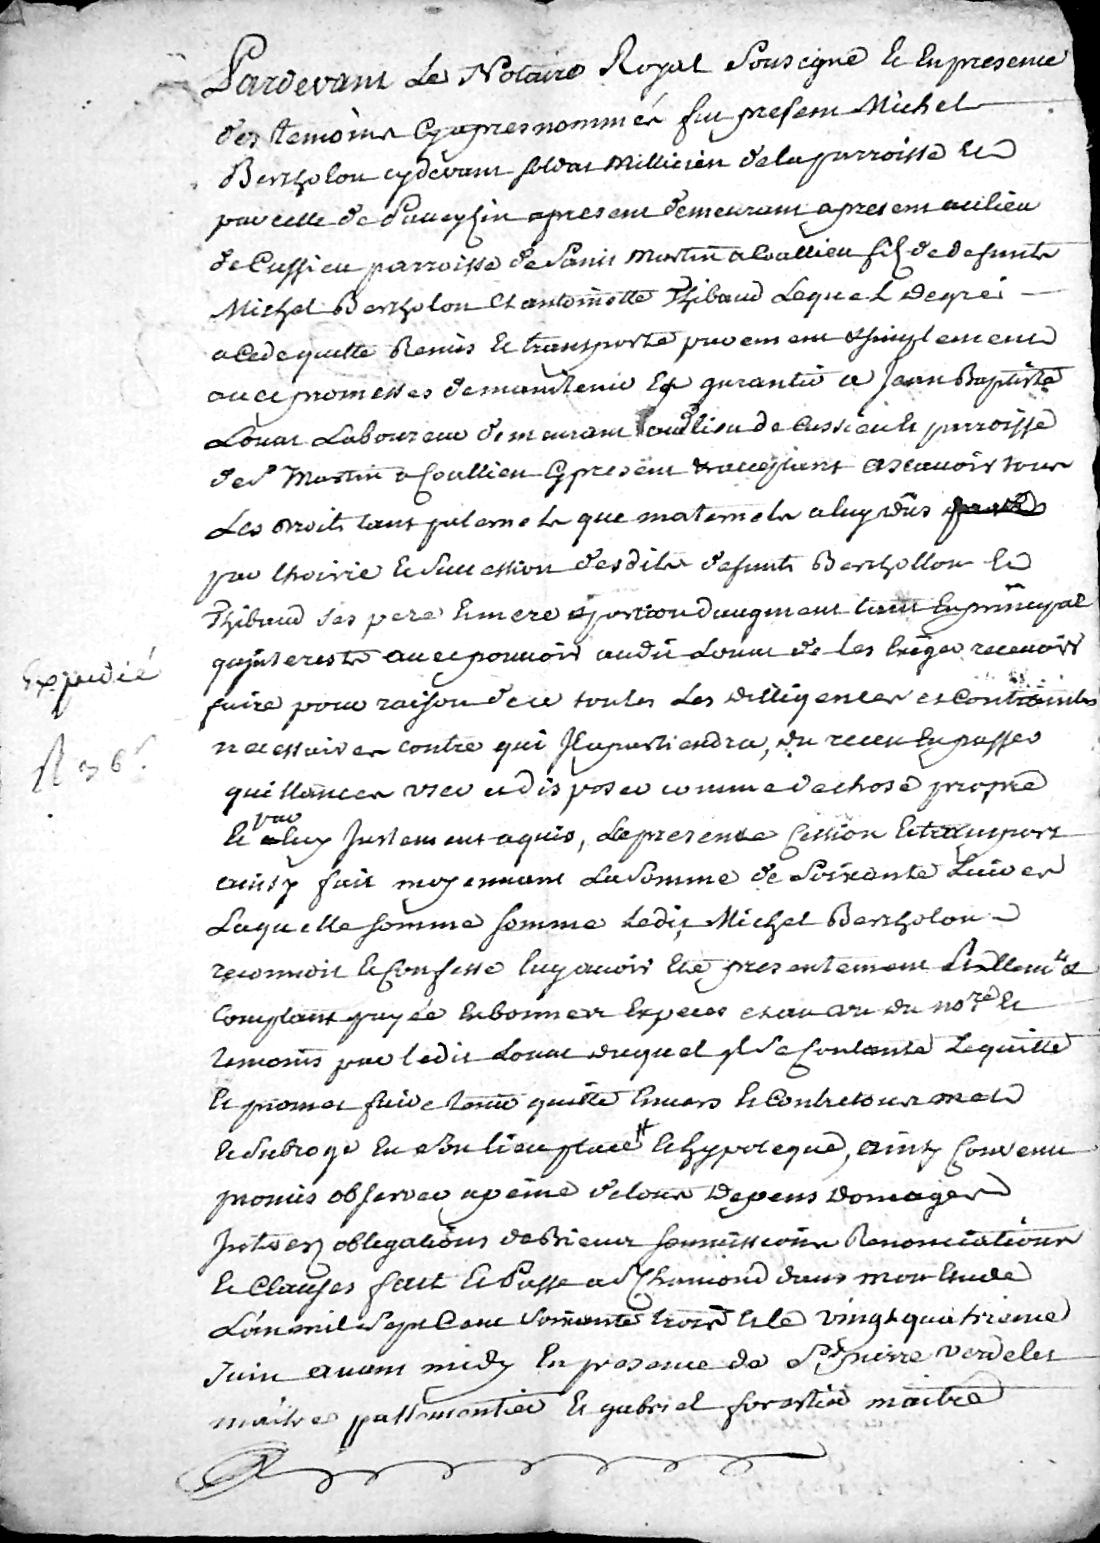 Pardevant Le Notaire Royal Sousigné Et En presence
des temoins Cyapres nommés fut present Michel
Bertholon cydevant soldat Millicien de la parroisse Et
par celle de apresent demeurant apresent au lieu
de Cussieu parroisse de Saint Martin a Coallieu fils de defunts
Michel Bertholon Et antoinette Thibaud Lequel de gré
a Cedé quitté Remis Et transporté purement & simplement
avec promesses de maintenir Et garantir a Jean Baptiste
Louat Laboureur demeurant audit lieu de Cussieu Et parroisse
de St Martin a Coallieu Cy present & acceptant ascavoir tous
Les Droits tant paternels que maternels a luy dûs
par Lhoirie Et Succession desdits defunts Berthollon Et
Thibaud ses pere Et mere & portion daugment tant En principal
qu'interests avec pouvoir audit Louat de les Exiger recevoir
faire pour raison de ce toutes Les Dilligences et Contraintes
necessaires contre qui Il apartiendra, du receu En passer
quittances user et disposer comme de chose propre
par
Et a luy Justement aquis, La presente Cession Et transport
ainsy fait moyennant La Somme de Soixante Livres
Laquelle somme somme Ledit Michel Bertholon
reconnoit Et Confesse luy avoir Eté presentement Reellemt &
Comptant payée En bonnes Especes et au vu du nore Et
temoins par ledit Louat duquel Il se Contente Lequitte
Et promet faire tenir quitte Envers Et Contre tous met
Et Subroge En son lieu place # Et hypoteque, ainsy Convenu
promis observer a peine de tous Depens Domages
Interez obligations de Biens soumissions Renonciations
Et Clauses fait Et Passé a St Chamond dans mon Etude
L'an mil Sept Cent Soixante trois Et le vingt quatrieme
Juin avant midy En presence de Sr pierre verdelet
maitre passmentier Et gabriel forestier maitre
Expedié